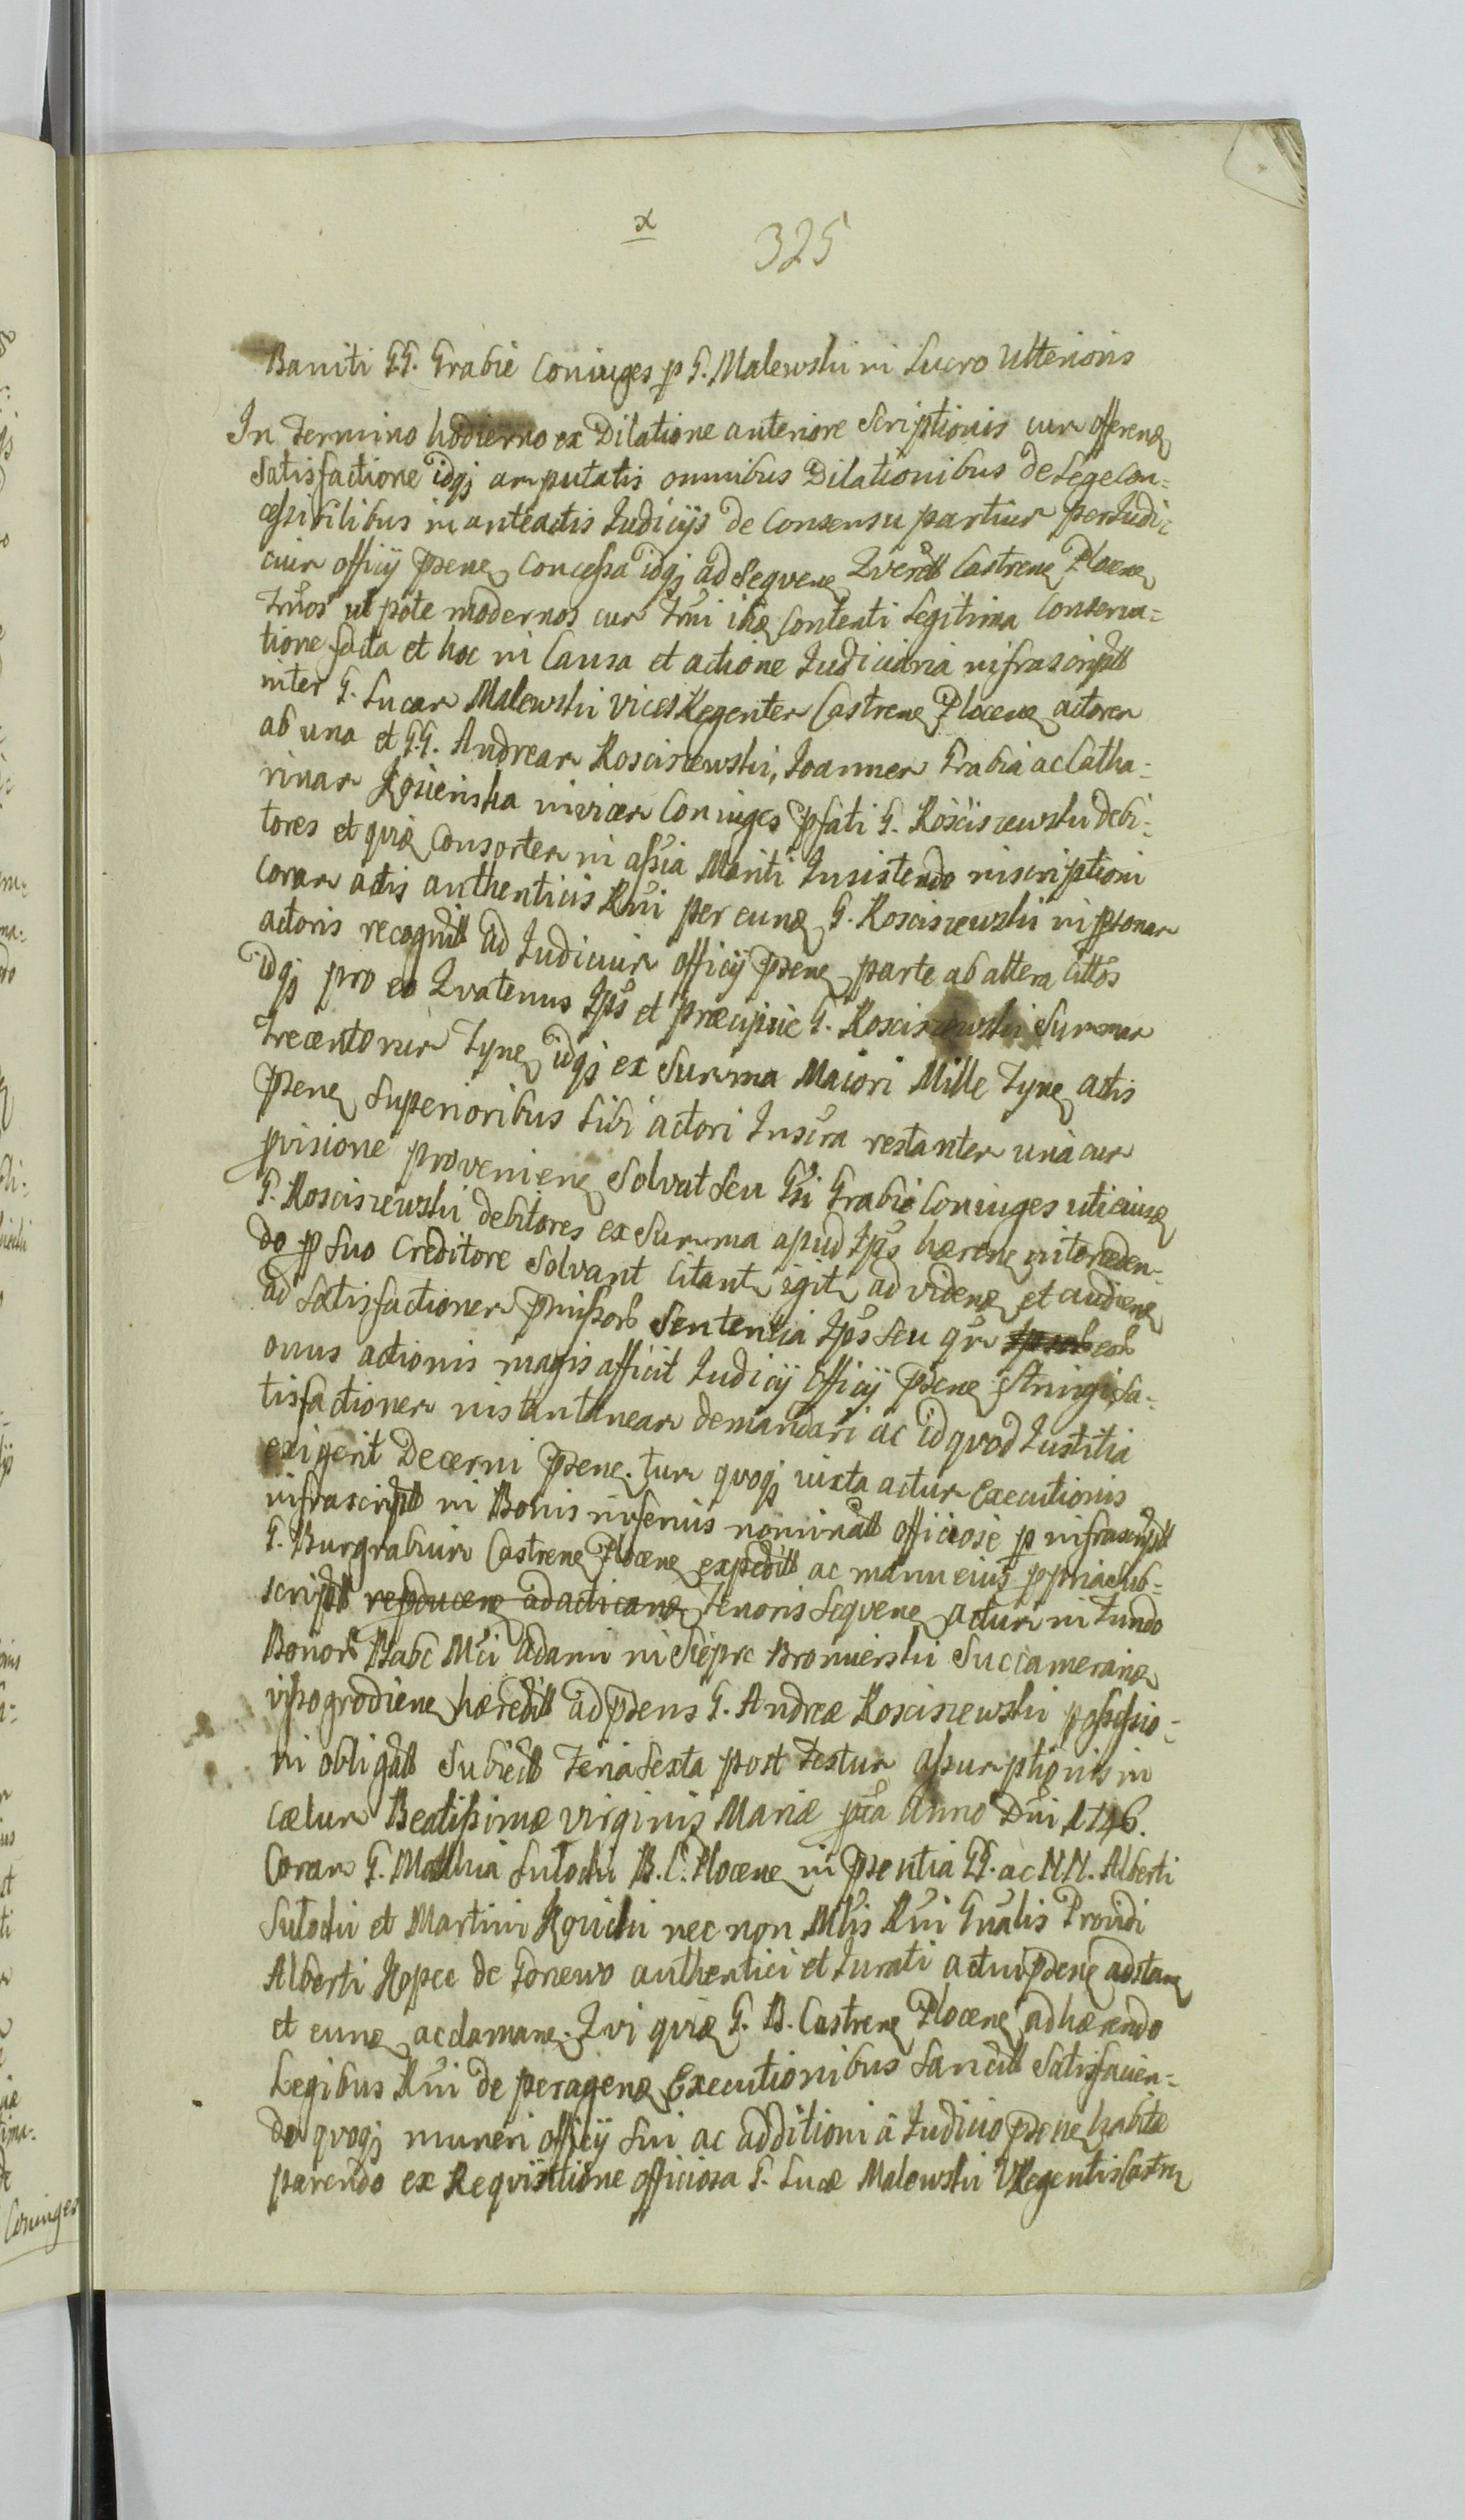 x
325
Baniti GG. Grabie Coniuges p G. Malewski in Lucro Ulterioris
In Termino hodierno ex Dilatione anteriore Scriptionis cum offeren
Satisfactione idqj amputatis omnibus Dilationibus de Lege Con=
cessibilibus in anteactis Iudicijs de Consensu partium per Iudi=
cium officij psene Concessa idqj ad Sequen Querell Castren Plocen
Trnos ut pote modernos cum Trni ibq Contenti Legitima Conserva=
tione facta et hoc in Causa et actione Iudiciaria infrascriptt
inter G. Lucam Malewski vices Regentem Castren Plocen actorem
ab una et GG. Andream Rosciszewski, Joannem Grabia ac Catha=
rinam Kosienska invicem Coniuges pfati G. Rosciszewski debi=
tores et quiq Consortem in assia Mariti Insistendo inscriptioni
coram actis authenticis Rni per eunq G. Rosciszewski in psonam
actoris recognitt ad Iudicium officij psene parte ab altera Cittos
idqj pro eo Quatenus Ips et præcipue G. Rosciszewski Summam
Trecentorum Tyne idqj ex Summa Maiori Mille Tyne actis
psene Superioribus Sibi actori Inscra restantem una cum
pvisione provenien Solvat Seu GGi Grabie Coniuges uti eiusq
G. Rosciszewski debitores ex Summa apud Ips hæren interceden=
do p Suo Creditore Solvant Citant igitr ad videnq et audienq
ad Satisfactionem pmissorb Sententia Ips Seu qm eorb
onus actionis magis afficit Iudicij Officij psene Stringi Sa=
tisfactionem instantaneam demandari ac id quod Iustitia
exigerit Decerni psene. tum quoqj iuxta actum Executionis
infrascriptt in Bonis inferius nominatt officiose p infrascriptt
G. Burgrabium Castren Plocen expeditt ac manu eius ppria Sub=
scriptt repducen ad acticanq Tenoris Sequen actum in Fundo
Bonorb Babc Mci Adami in Sieprc Bromierski Succamerariq
vissogrodien hæreditt ad psens G. Andreæ Rosciszewski possessio=
ni obligatt Subiectt Feria Sexta post Festum assumptionis in
cælum Beatissimæ virginis Mariæ pxa Anno Dni 1746.
Coram G. Mathia Sutocki B. C. Plocen in psentia GG. ac NN. Alberti
Sutocki et Martini Kgoicki nec non Mtlis Rni Gnalis Providi
Alberti Kopec de Gonewo authentici et Iurati actui psene adstan
et eunq acclaman. Qui quiq G. B. Castren Plocen adhærendo
Legibus Rni de peragenq Executionibus Sancitt Satisfacien=
do quoqj muneri officij Sui ac additioni a Iudicio psene habitæ
parendo ex Requisitione officiosa G. Lucæ Malewski VRegentis Castren